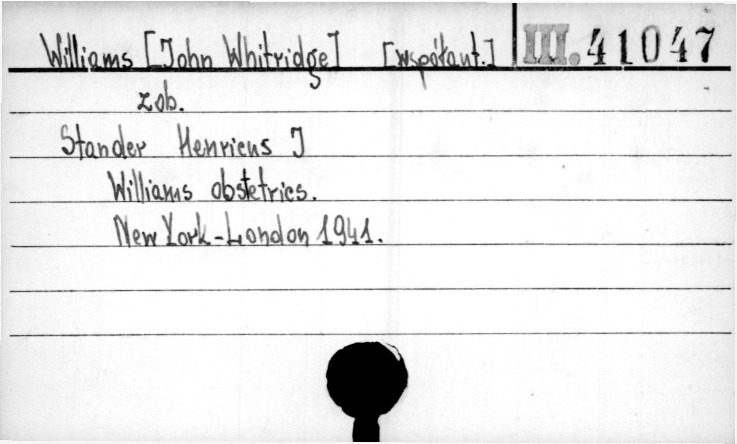 Williams [John Whitridge] [współaut.] III. 41047
zob.
Stander Henricus J
Williams obstetrics.
New York-London 1941.